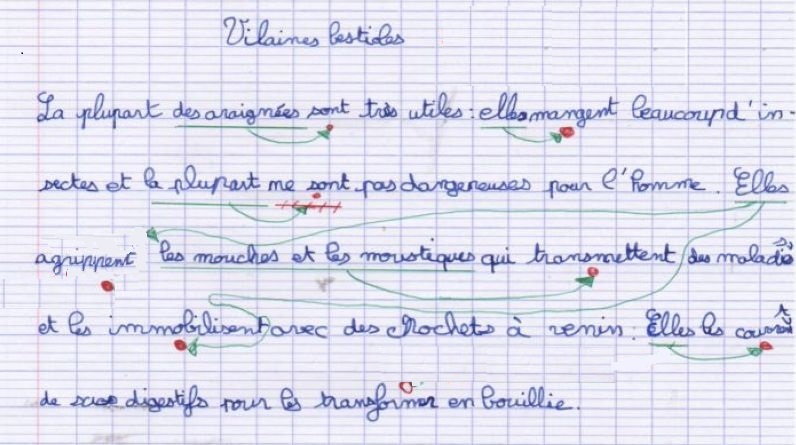 Vilaines bestioles
La plupart des araignées sont très utiles : elles mangent beaucoup d'in-
sectes et la plupart ne sont pas dangereuses pour l'homme. Elles
agrippent les mouches et les moustiques qui transmettent des maladies
et les immobilisent avec des crochets à venin. Elles les
de sucs digestifs pour les transformer en bouillie.